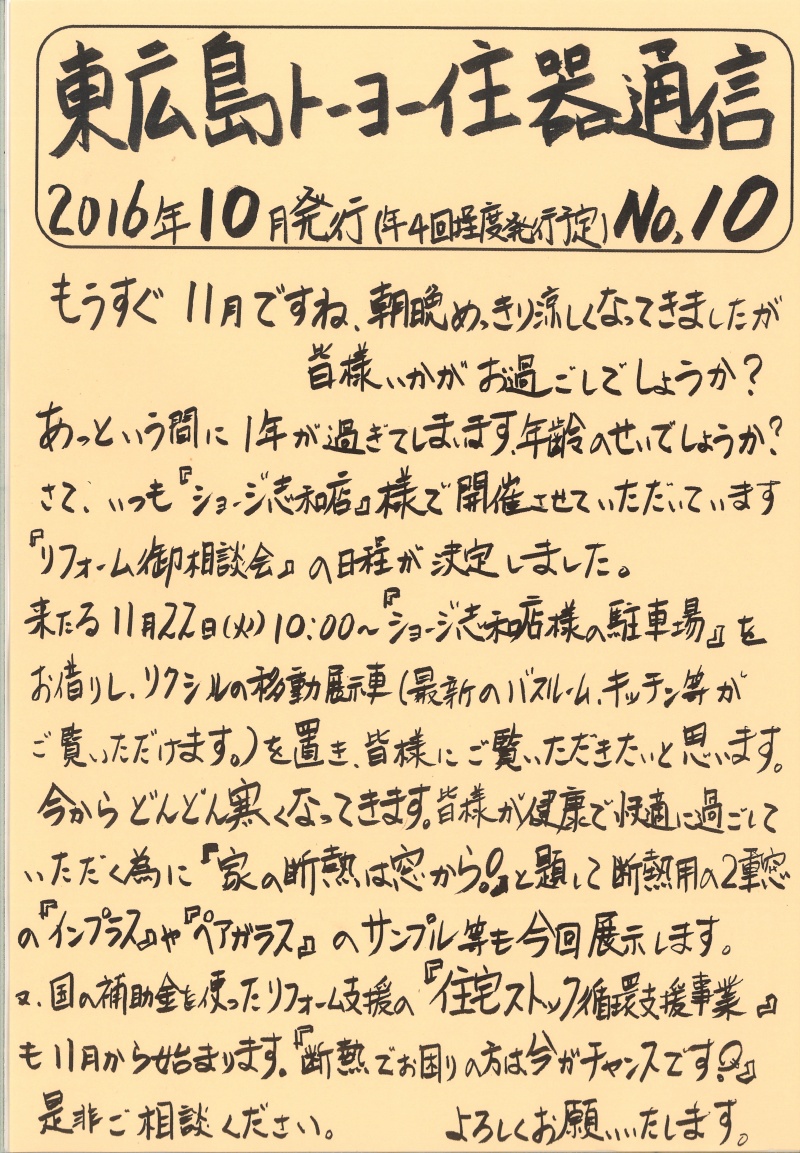 東広島トーヨー住器通信
2016年10月発行(年4回程度発行予定)No.10
もうすぐ11月ですね、朝晩めっきり涼しくなってきましたが
皆様いかがお過ごしでしょうか?
あっという間に1年が過ぎてしまいます、年齢のせいでしょうか?
さて、いつも『ショージ志和店』様で開催させていただいています
『リフォーム御相談会』の日程が決定しました。
来たる11月22日(火)10:00〜『ショージ志和店様の駐車場』を
お借りし、リクシルの移動展示車(最新のバスルーム、キッチン等が
ご覧いただけます。)を置き、皆様にご覧いただきたいと思います。
今からどんどん寒くなってきます。皆様が健康で快適に過ごして
いただく為に『家の断熱は窓から!』と題して断熱用の2重窓
の『インプラス』や『ペアガラス』のサンプル等も今回展示します。
又、国の補助金を使ったリフォーム支援の『住宅ストック循環支援事業』
も11月から始まります。『断熱でお困りの方は今がチャンスです!』
是非ご相談ください。 よろしくお願いいたします。